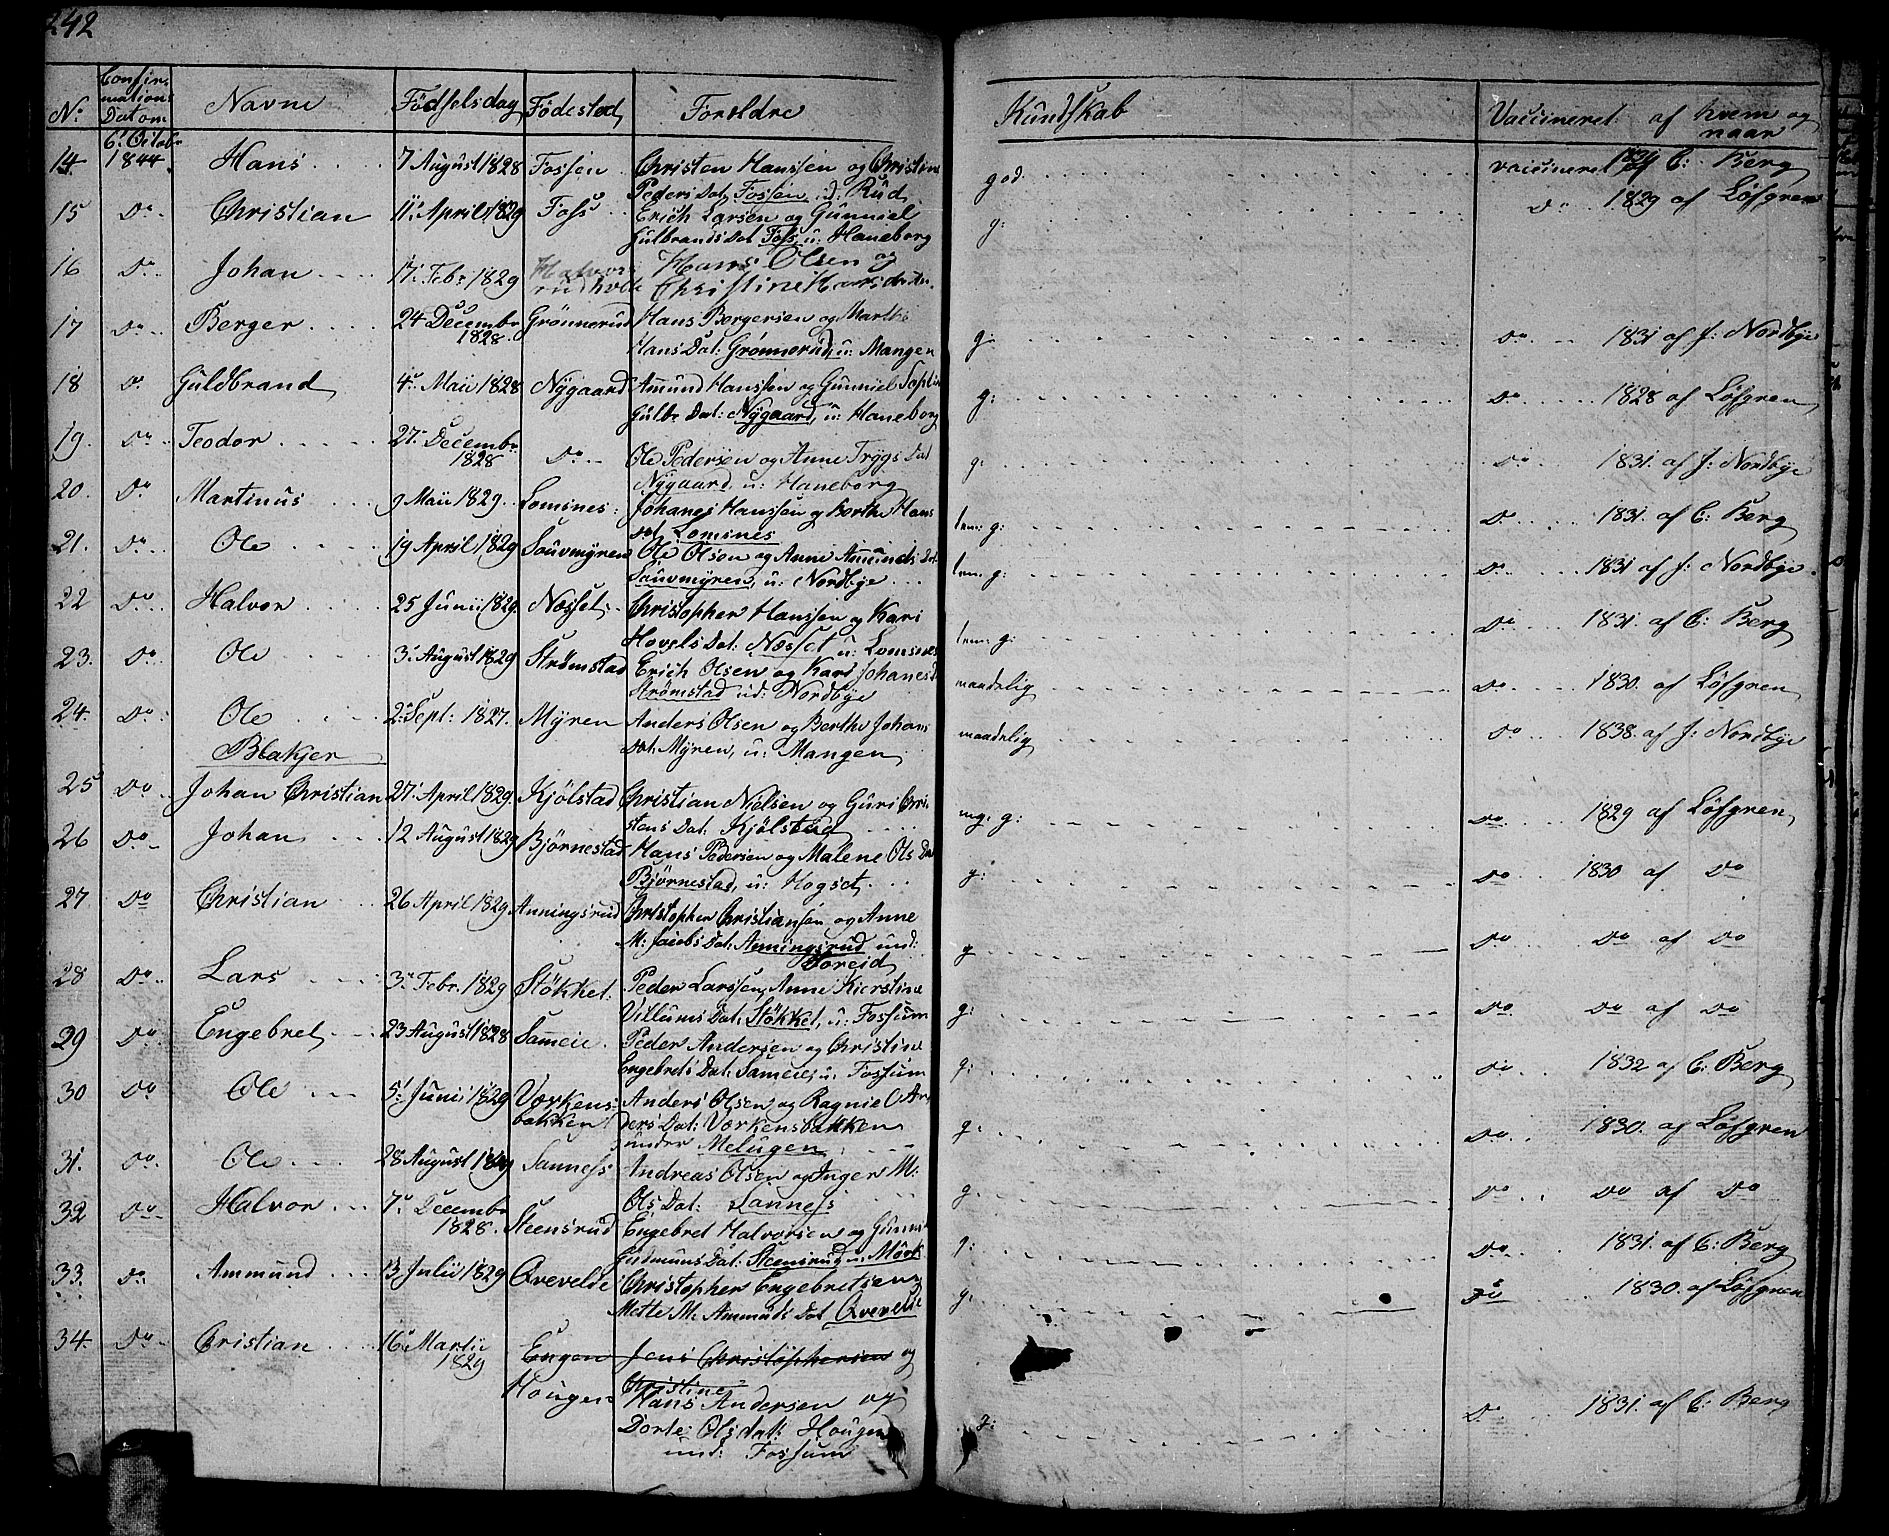 242
N: Confirmations Datom Navne Födselsdag Födested Foreldre Kundskab Vaccineret af hvem og naar
14 6: Octob: 1844 Hans 7 August 1828 Fossen Christen Hanssen og Christine god vaccineret C: Berg
Peders Dat, Fossen, u: Rud
15 Do Christian 11: April 1829 Foss Erich Larsen og Gunniel g: Do 1829 af Löfgren
Gulbrands Dat Foss u: Haneborg
16 Do Johan 17: Febr 1829 Halvors Hans Olsen og
rudholt Christine
17 Do Berger 24 Decembr Grönnerud Hans Borgersen og Marthe g: Do 1831 af J: Nordbye
1828. Hans Dat: Grönnerud, u: Mangen
18 Do Guldbrand 4: Maii 1828 Nÿgaard Amund Hanssen og Gunniel Sophie g: Do 1828 af Löfgren
Gulbr Dat: Nÿgaard, u: Haneborg
19. Do Teodor 27: Decembr Do Ole Pedersen og Anne Trygs Dat g: Do 1831. af J: Nordbye
1828 Nÿgaard, u: Haneborg
20. Do Martinus 9 Maii 1829. Lomsnes: Johanes Hanssen og Berthe Hans tem: g: Do 1831. af C: Berg
dat Lomsnes
21. Do Ole 19 April 1829 Sauvmÿren Ole Olsen og Anne Amunds Dat tem: g: Do 1831 af J: Nordbye.
Sauvmÿren, u: Nordbye
22 Do Halvor 25 Junii 1829. Næsset Christopher Hanssen og Kari tem: g: Do 1831. af C: Berg
Hovels Dat: Næsset u: Lomsnes
23. Do Ole 3: August 1829 Strømstad Erich Olsen og Kari Johanes D maadelig Do 1830. af Löfgren
Strømstad ud: Nordbye
24. Do Ole 2: Sept: 1827. Mÿren Anders Olsen og Berthe Johans maadelig Do 1838. af J: Nordbye
Dat: Mÿren, u: Mangen
Blakjer
25 Do Johan Christian 27: April 1829 Kjölstad Christian Nielsen og Guri Chri- mg: g: Do 1829 af Löfgren
stens Dat: Kjölstad
26 Do Johan 12 August 1829 Björnestad Hans Pedersen og Malene Ols Dat g: Do 1830 af Do
Björnestad, u: Hogset
27 Do Christian 26 April 1829 Anningsrud Christopher Christiansen og Anne g Do Do af Do
M: Jacobs Dat: Anningsrud und:
Toreid
28 Do Lars 3: Febr. 1829 Stökket: Peder Larssen, Anne Kierstine g: Do Do af Do
Villums Dat: Stökket, u: Fossum
29 Do Engebret 23 August 1828 Sameie. Peder Andersen og Christine g: Do 1832 af C: Berg
Engebrets Dat: Sameie, u: Fossum
30 Do Ole 5: Junii 1829 Værkens- Anders Olsen og Ragnie An- g: Do 1830. af Löfgren
bakken ders Dat: Værkensbakken
under Melugen
31. Do Ole 28 August 1829 Sanness Andreas Olsen og Inger M: g: Do Do af Do
Ols Dat: Sanness
32 Do Halvor 7: Decembr Steensrud Engebret Halvorsen og Gunnil g: Do 1831. af C: Berg
1828. Gudmuns Dat: Steensrud u: Mörk
33. Do Ammund 13 Julii 1829 Qvevelde Christopher Engebretsen g: Do 1830. af Löfgren
Mette M: Ammunds Dat Qvevelde
34. Do Cristian 16: Martii Engen Jens Christophersen og
1829 Christine
Hougen Hans Andersen og g: Do 1831. af C: Berg
Dorte: Olsdat: Hougen
und: Fossum